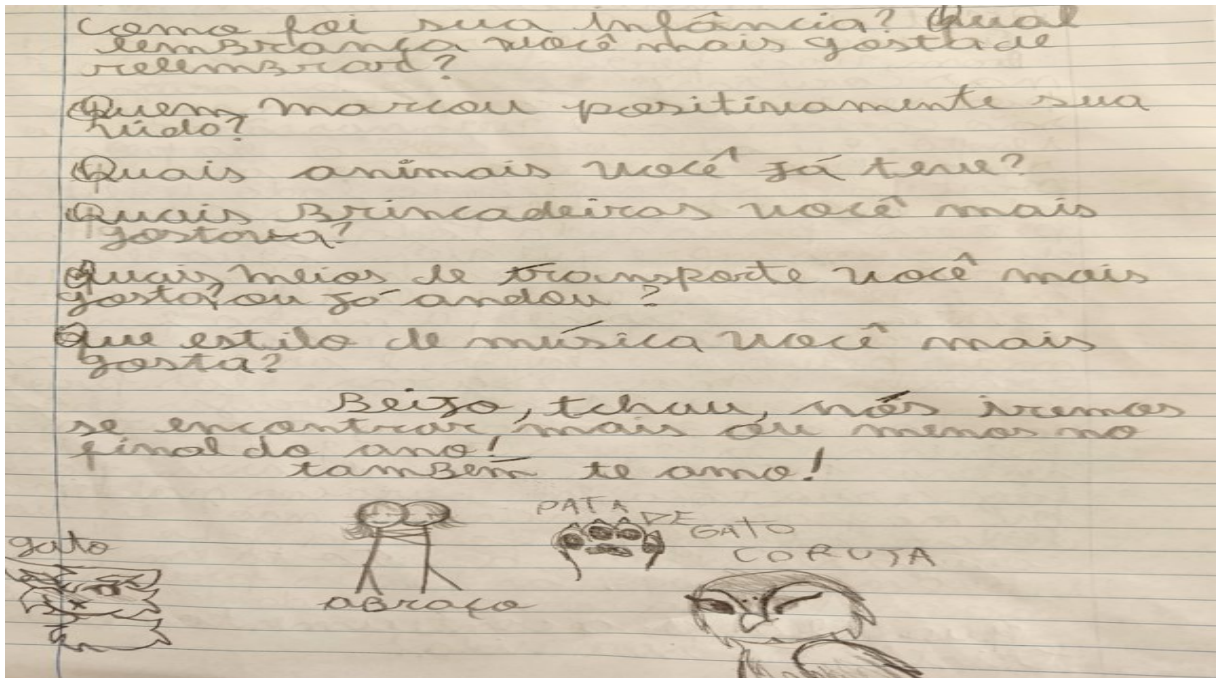 Como foi sua infância? Qual
lembrança você mais gosta de
relembrar?
Quem marcou positivamente sua
vida?
Quais animais você já teve?
Quais brincadeiras você mais
gostava?
Quais meios de transporte você mais
gosta, ou já andou?
Que estilo de música você mais
gosta?
Beijo, tchau, nós iremos
se encontrar mais ou menos no
final do ano!
também te amo!
PATA DE GATO
gato
CORUJA
abraço